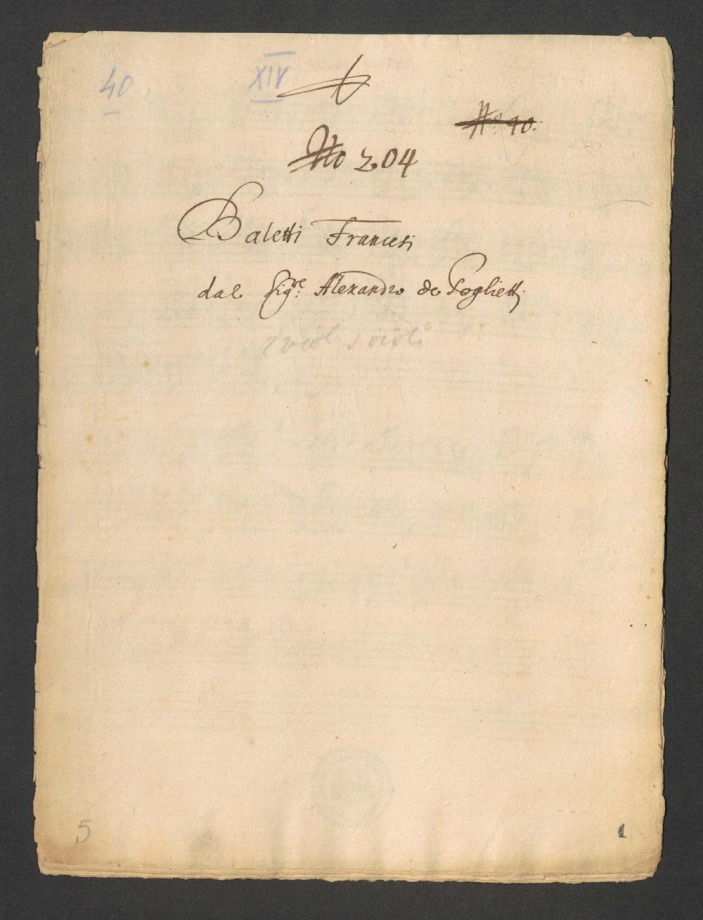 40 XIV
No 40.
No 204
Baletti Francesi
dal Sig:re Alexandro de Poglietti
5 1